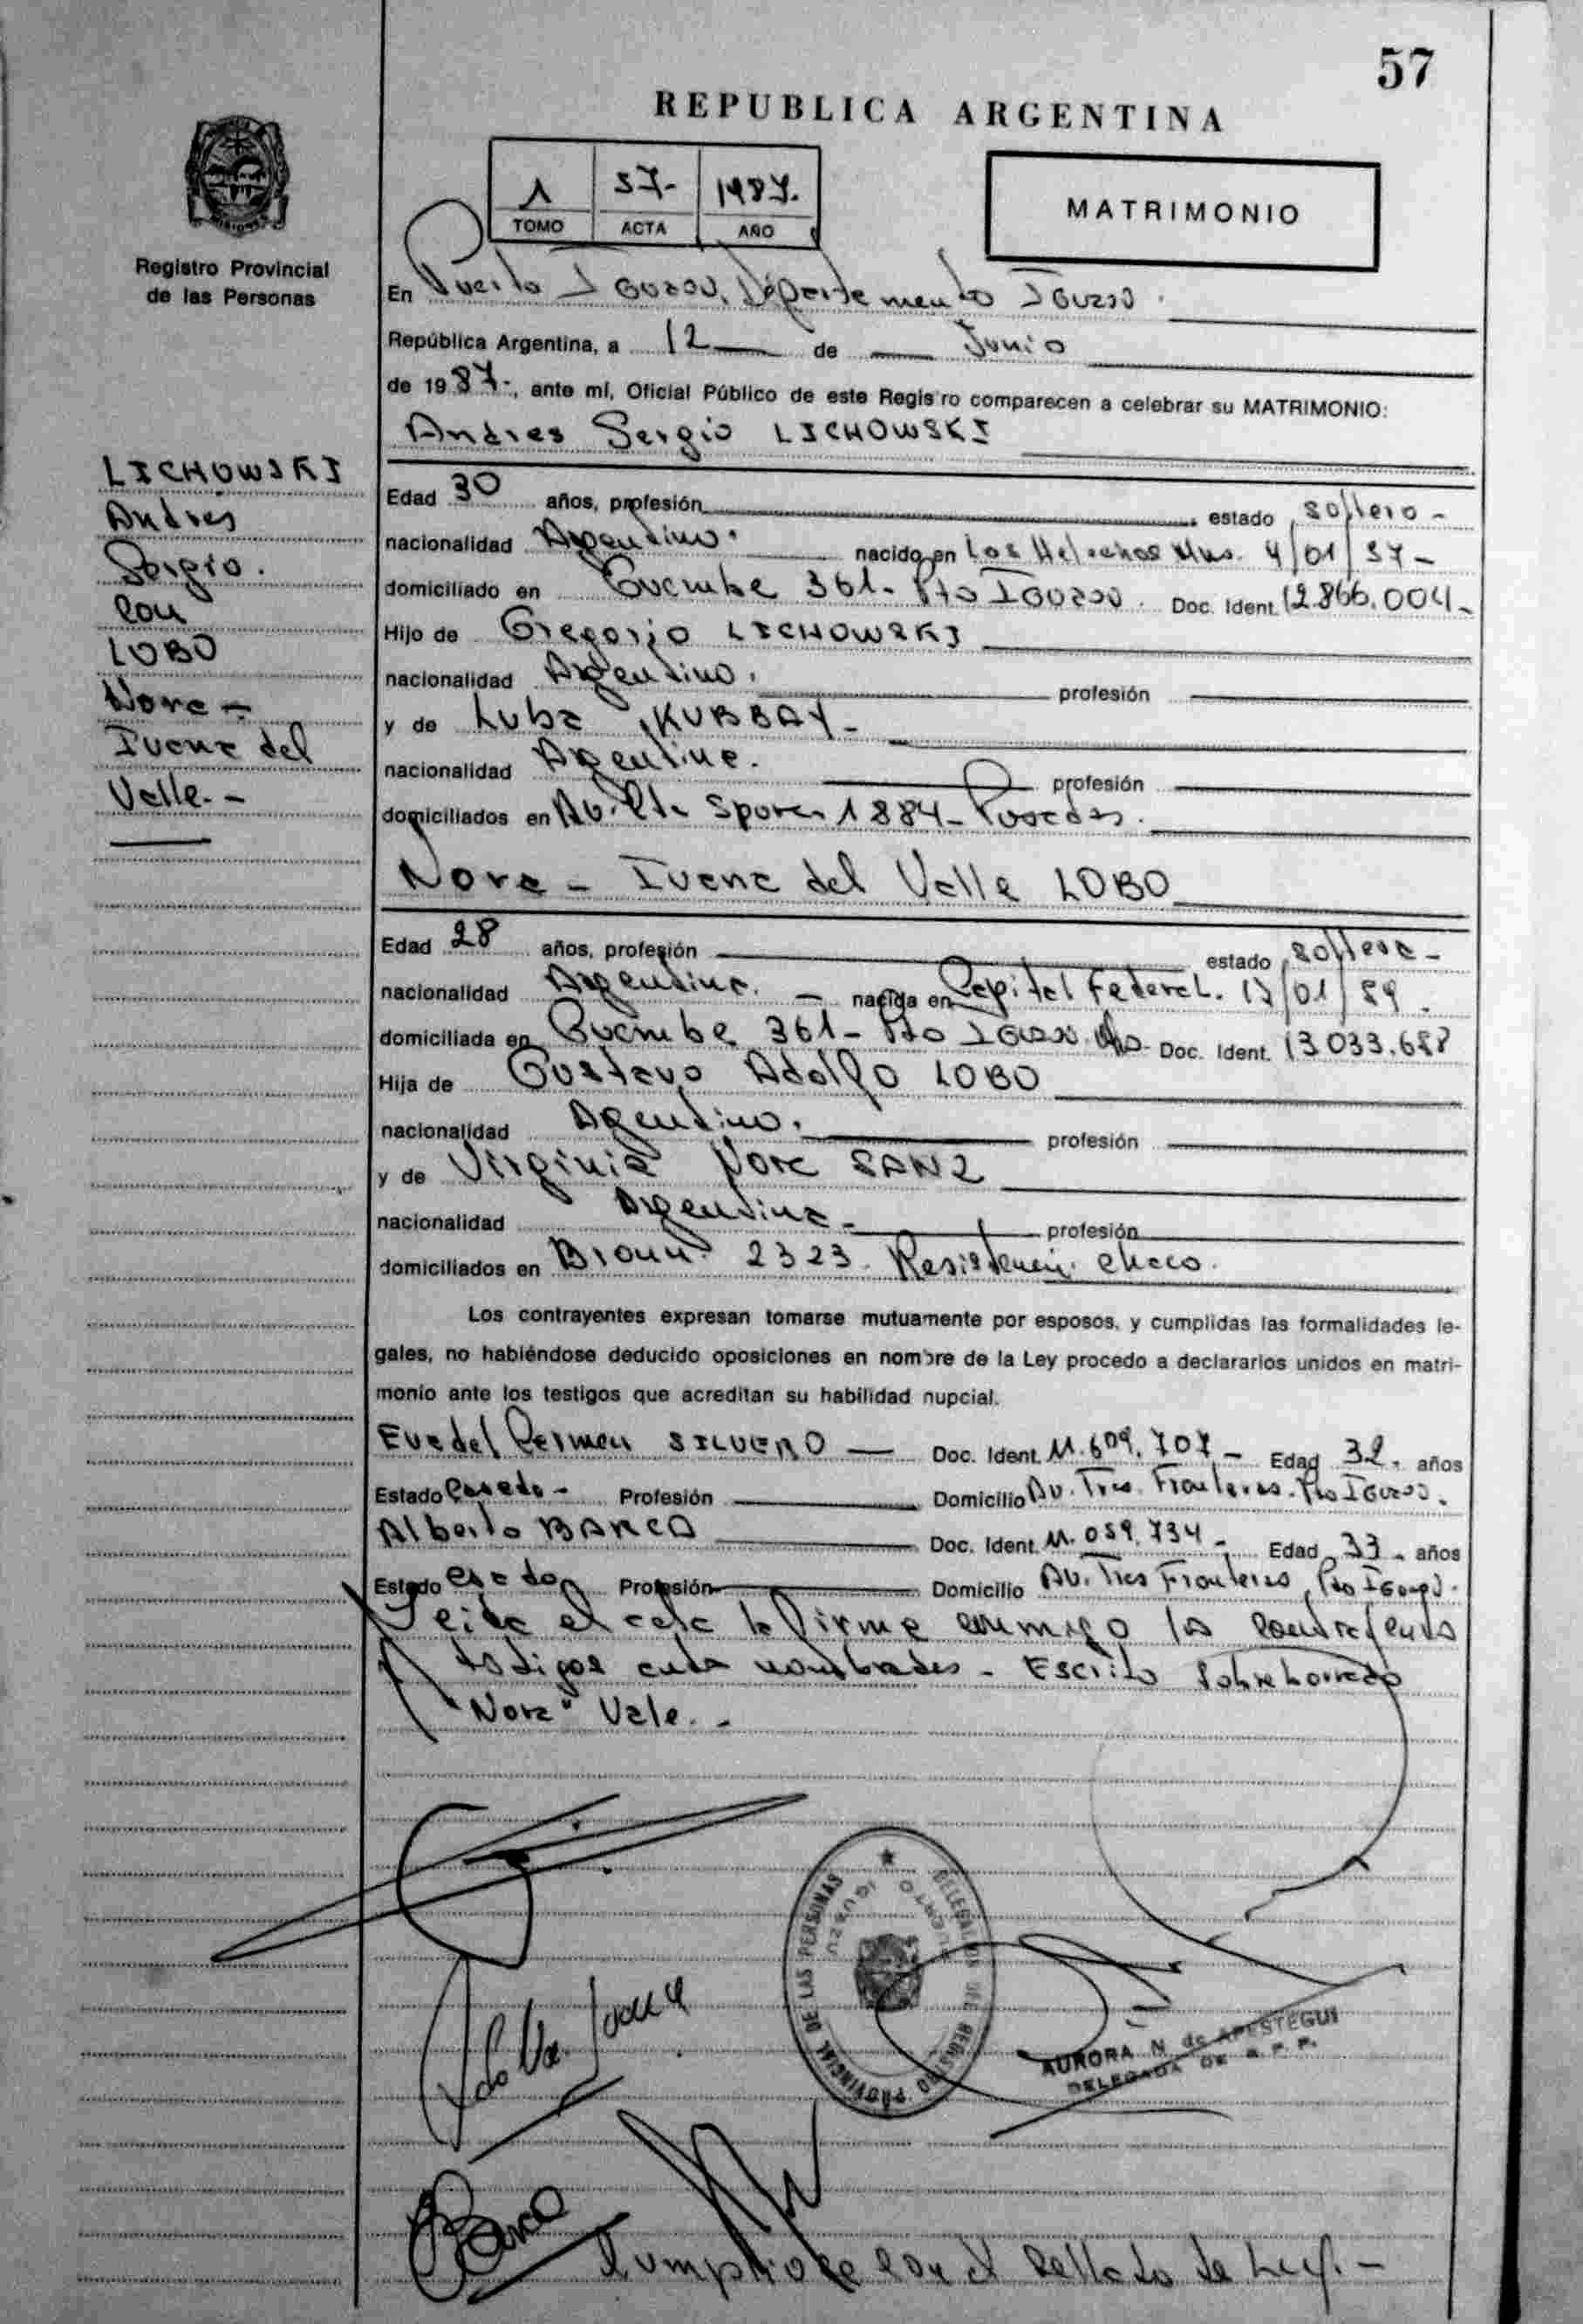 57
REPUBLICA ARGENTINA
1 57- 1987.
TOMO ACTA AÑO
MATRIMONIO
Registro Provincial
de las Personas
LICHOWSKI
Andrés
Sergio.
con
LOBO
Nora -
Ivana del
Valle. -
En Puerto Iguazú, Departamento Iguazú
República Argentina, a 12 de Junio
de 1987-, ante mí, Oficial Público de este Registro comparecen a celebrar su MATRIMONIO:
Andres Sergio LICHOWSKI
Edad 30 años, profesión estado soltero -
nacionalidad Argentino. nacido en Los Helechos Mns. 4/01/57-
domiciliado en Guembe 361- Pto Iguazú. Doc. Ident. 12.866.004-
Hijo de Gregorio LICHOWSKI
nacionalidad Argentino. profesión
y de Luba KUBBAY -
nacionalidad Argentina. profesión
domiciliados en Av. 1884- Posadas.
Nora - Ivana del Valle LOBO
Edad 28 años, profesión estado soltera -
nacionalidad Argentina. - nacida en Capital Federal. 17/01/59.
domiciliada en Guembe 361- Pto Iguazú Mns. Doc. Ident. 13.033.688
Hija de Gustavo Adolfo LOBO
nacionalidad Agentino. profesión
y de Virginia Nora SANZ
nacionalidad Argentina - profesión
domiciliados en Brown 2323. Resistencia Chaco.
Los contrayentes expresan tomarse mutuamente por esposos, y cumplidas las formalidades le-
gales, no habiéndose deducido oposiciones en nombre de la Ley procedo a declararlos unidos en matri-
monio ante los testigos que acreditan su habilidad nupcial.
Eva del Carmen SILVERO — Doc. Ident. 11.609.707 - Edad 32. años
Estado Casada - Profesión Domicilio Av. Tres Fronteras. Pto Iguazú.
Alberto BARCO Doc. Ident. 11.059.734 - Edad 33 - años
Estado Profesión Domicilio Av. Tres Fronteras, Pto Iguazú.
Leída el acta la firma conmigo los contrayentes
testigos nombrados - Escrito sobreborrado
"Nora" Vale. -
DELEGACION DEL REGISTRO PROVINCIAL DE LAS PERSONAS
PUERTO IGUAZU
AURORA N de APESTEGUI
DELEGADA DE R. P. P.
Barco
Cumpliose con el Sellado de Ley. -